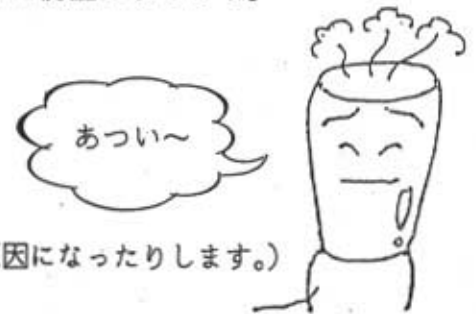 あつい～
因になったりします。）